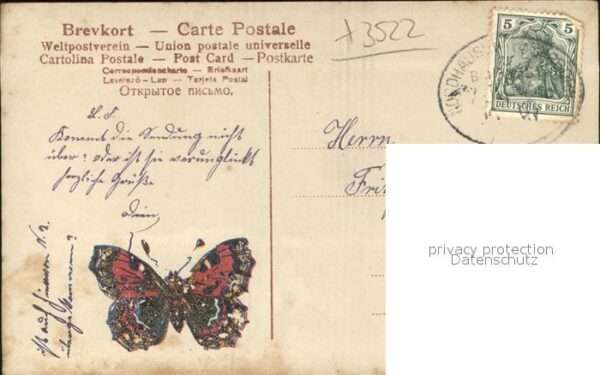 Brevkort — Carte Postale
Weltpostverein — Union postale universelle
Cartolina Postale — Post Card — Postkarte
Correspondenzkarte — Briefkaart
Levelező-Lap — Tarjeta Postal
Открытое письмо.
+3522
5 5
DEUTSCHES REICH
L. F.
Kommt die Sendung nicht
über? oder ist sie verunglückt
herzliche Grüße
ist auf
Herrn
privacy protection
Datenschutz